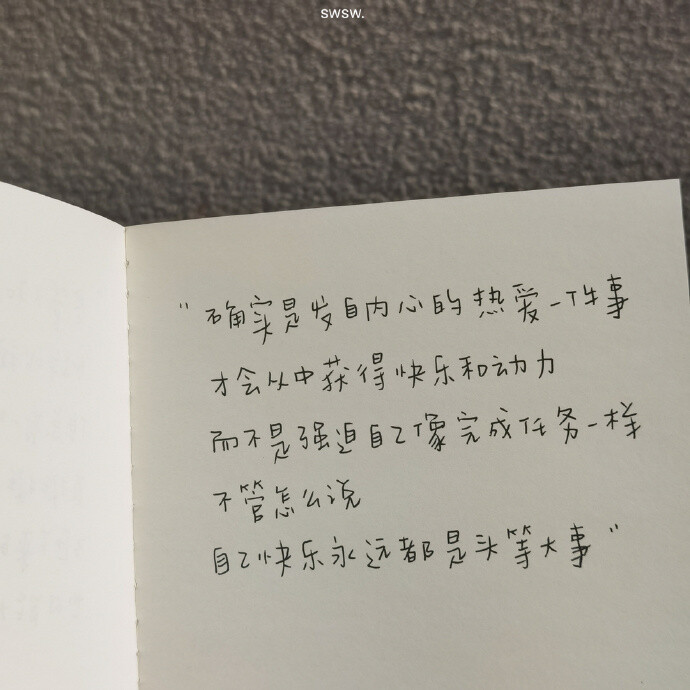 swsw.
"确实是发自内心的热爱一件事
才会从中获得快乐和动力
而不是强迫自己像完成任务一样
不管怎么说
自己快乐永远都是头等大事"